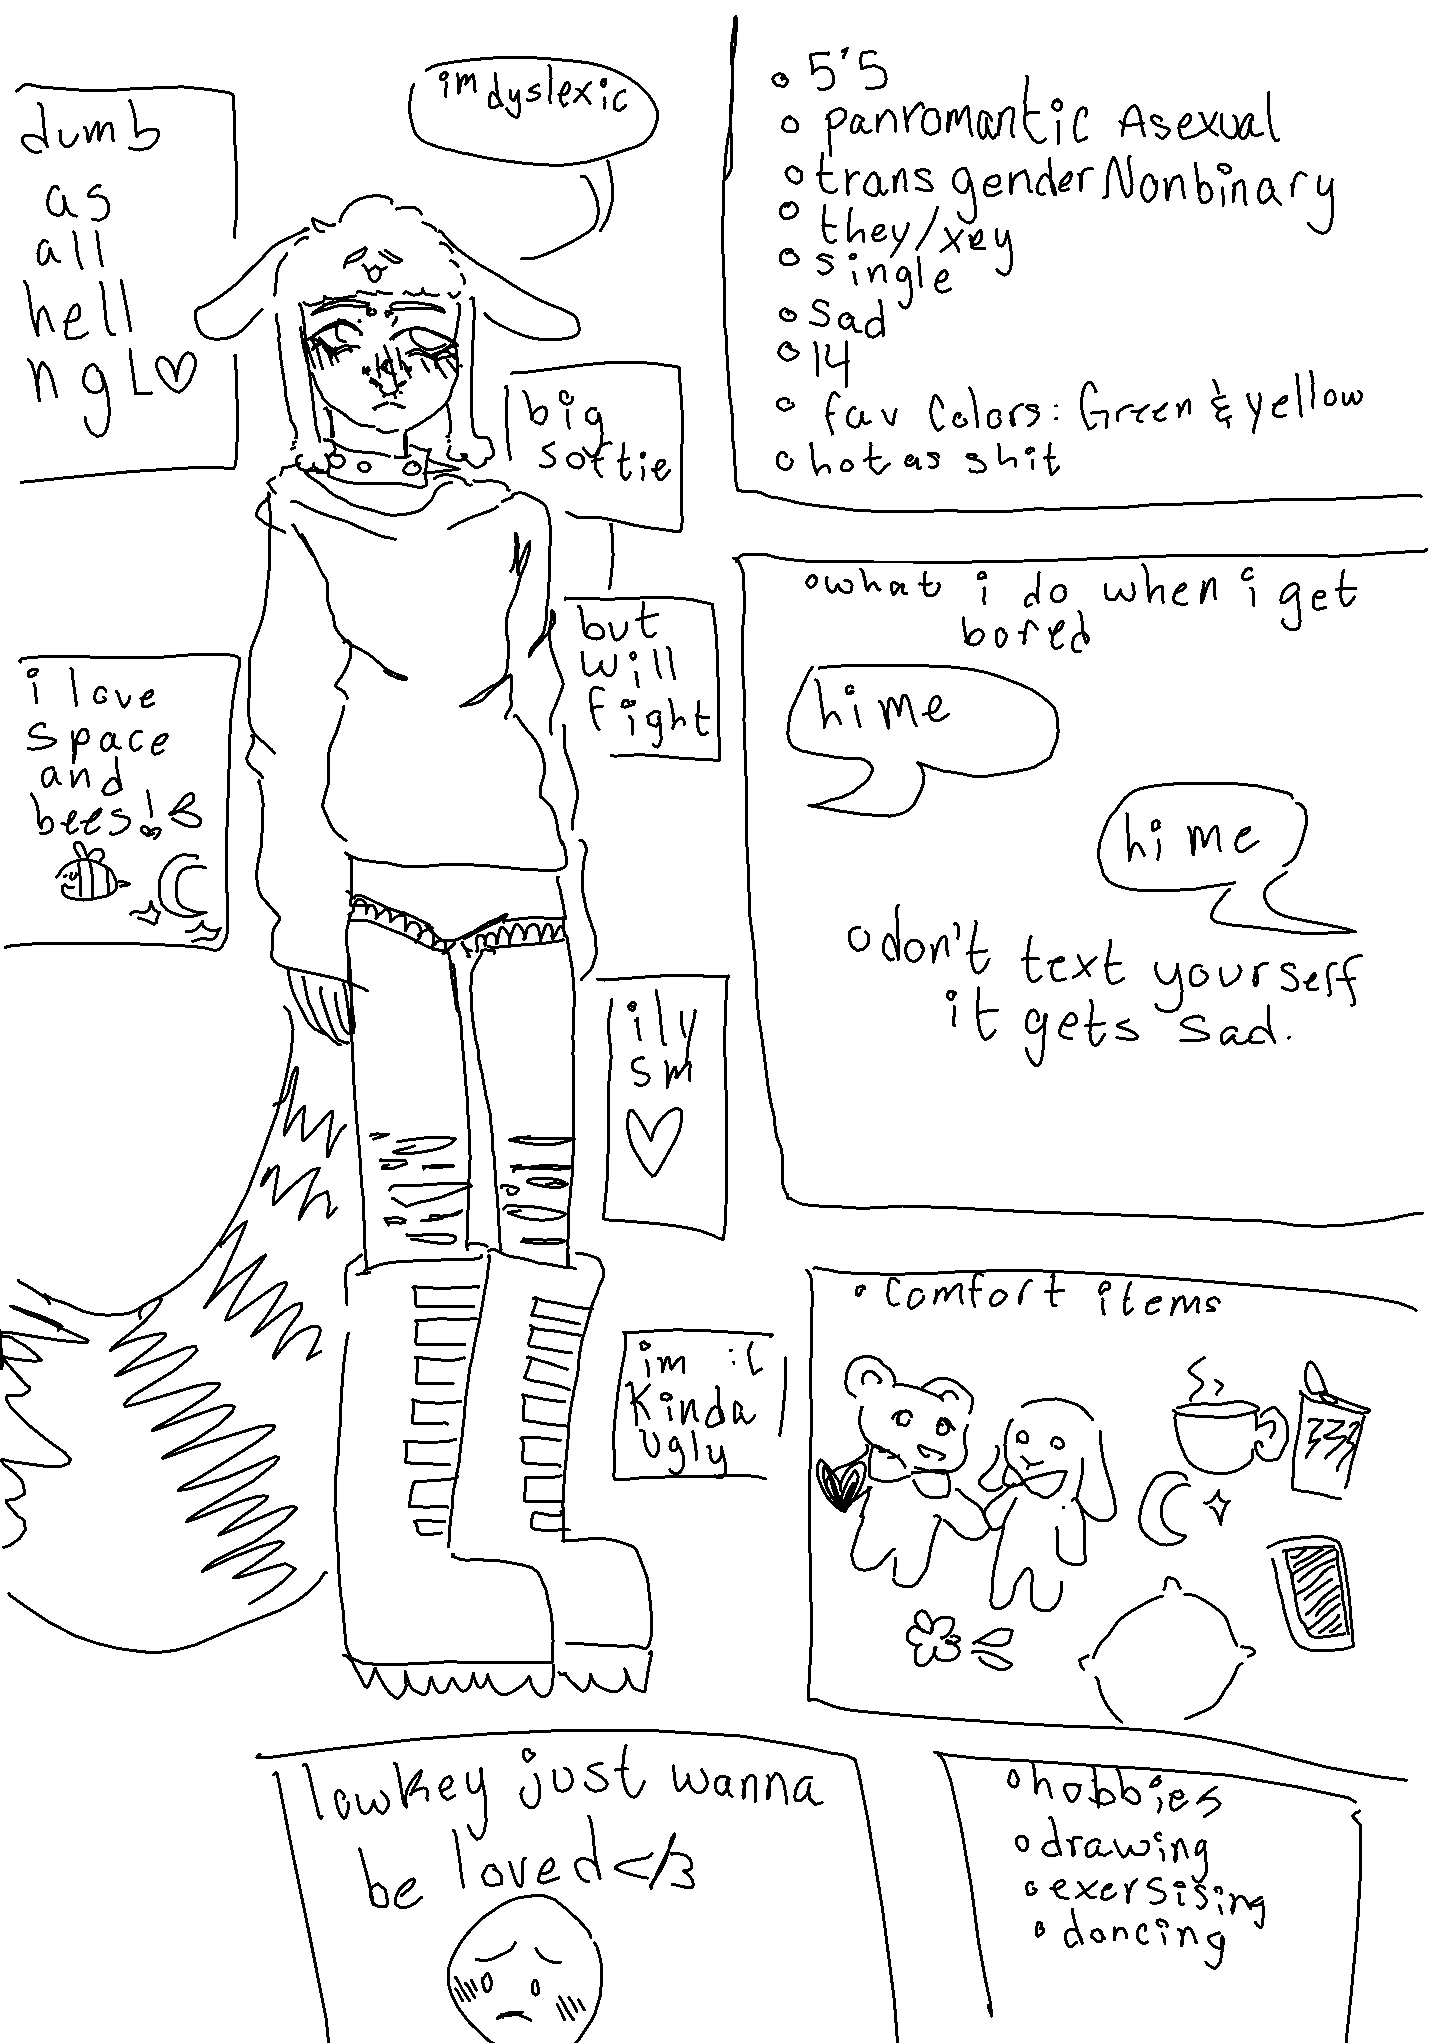 im dyslexic
dumb
as
all
hell
ngl♡
5'5
panromantic Asexual
trans gender Nonbinary
they/xey
single
sad
14
fav Colors: Green & yellow
hot as shit
big
softie
but
will
fight
what i do when i get
bored
hi me
hi me
don't text yourself
it gets sad.
i love
space
and
bees!
ily
sm
im :(
kinda
ugly
comfort items
lowkey just wanna
be loved </3
hobbies
drawing
exersising
dancing